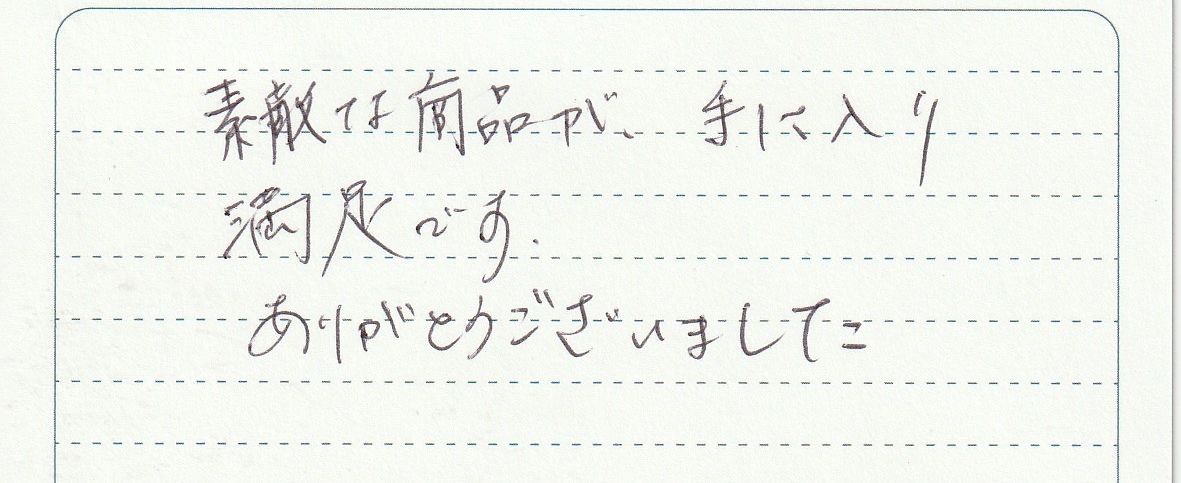 素敵な商品が、手に入り
満足です.
ありがとうございました